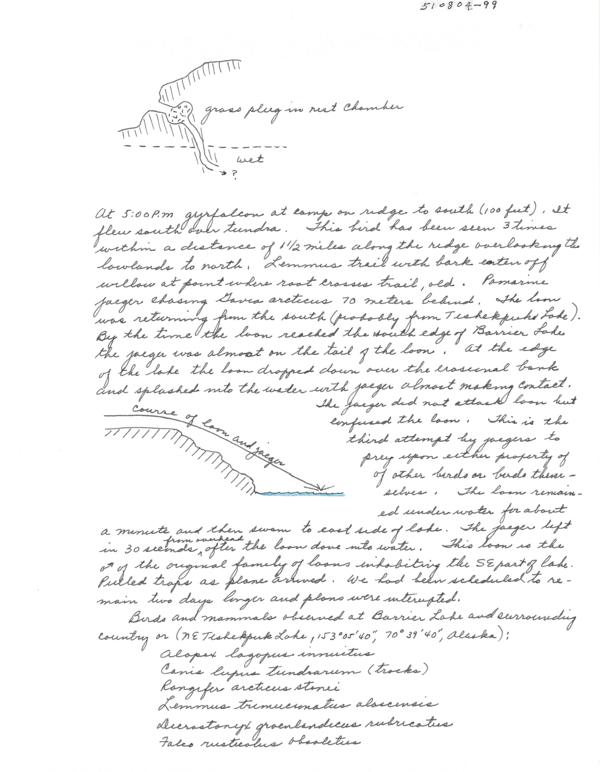 510804-99
grass plug in nest chamber
wet
?
At 5:00 P.m gyrfalcon at camp on ridge to south (100 feet). It
flew south over tundra. This bird has been seen 3 times
within a distance of 1 1/2 miles along the ridge overlooking the
lowlands to north. Lemmus trail with bark eaten off
willow at point where root crosses trail, old. Pomarine
jaeger chasing Gavia arcticus 70 meters behind. The loon
was returning from the south (probably from Teshekpuk Lake).
By the time the loon reached the south edge of Barrier Lake
the jaeger was almost on the tail of the loon. At the edge
of the lake the loon dropped down over the erosional bank
and splashed into the water with jaeger almost making contact.
The jaeger did not attack loon but
confused the loon. This is the
third attempt by jaegers to
prey upon either property of
of other birds or birds them-
selves. The loon remain-
ed under water for about
course of loon and jaeger
a minute and then swam to east side of lake. The jaeger left
in 30 seconds, from overhead, after the loon dove into water. This loon is the
♂ of the original family of loons inhabiting the SE part of lake.
Pulled traps as plane arrived. We had been scheduled to re-
main two days longer and plans were interupted.
Birds and mammals observed at Barrier Lake and surrounding
country or (NE Teshekpuk Lake, 153°05'40", 70°39'40", Alaska):
Alopex lagopus innuitus
Canis lupus tundrarum (tracks)
Rangifer arcticus stonei
Lemmus trimucronatus alascensis
Dicrostonyx groenlandicus rubricatus
Falco rusticolus obsoletus